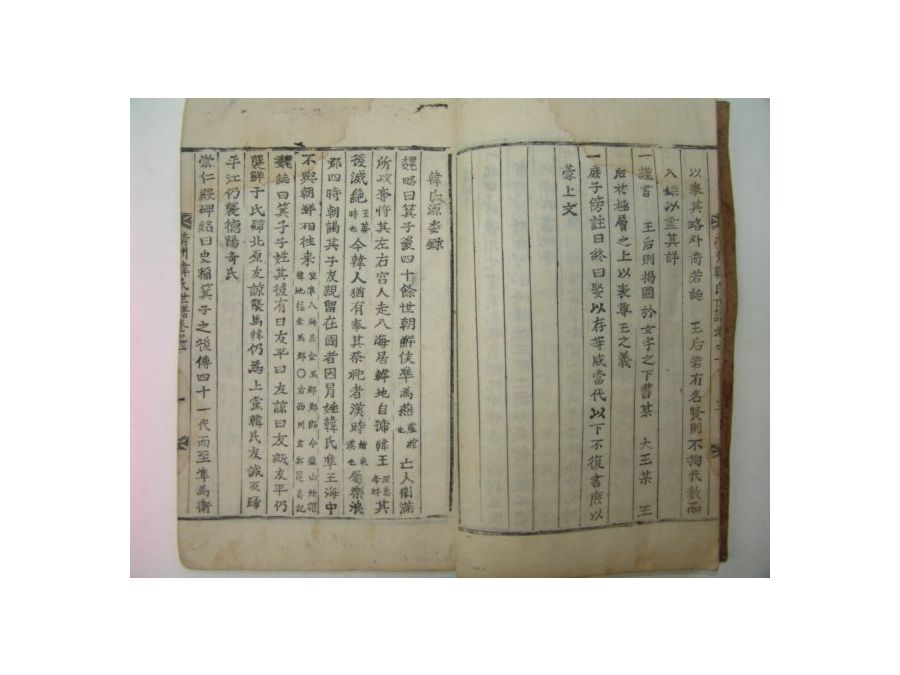 以擧其略外裔若誕 王后若有名賢則不拘代數而
入錄以盡其詳
一謹書 王后則揭圈於女字之下書某 大王某 王
后於極層之上以表尊王之義
一庶子傍註曰終曰娶以存等威當代以下不復書庶以
蒙上文
韓氏源委錄
魏略曰箕子後四十餘世朝鮮侯準爲燕盧綰也亡人衛滿
所攻奪將其左右宮人走入海居韓地自號韓王其
後滅絶王莽時也今韓人猶有奉其祭祀者漢時也屬樂浪
郡四時朝謁其子友親留在國者因冒姓韓氏準王海中
不與朝鮮相往來
魏誌曰箕子子姓其後有曰友平曰友諒曰友誠友平仍
襲鮮于氏歸北原友諒襲馬韓仍爲上黨韓氏友誠友歸
平江仍襲德陽奇氏
崇仁殿碑銘曰史稱箕子之後傳四十一代而至準爲衛
清州韓氏世譜卷之